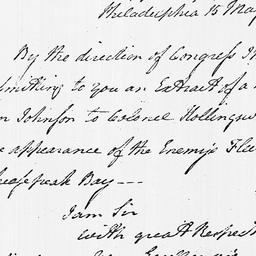 Philadelphia 15 May
By the direction of Congress I
to you an Extract of a
Johnson to Colonel Hollingsw
appearance of the Enemy's Flee
Bay ---
I am Sir
with great Respect